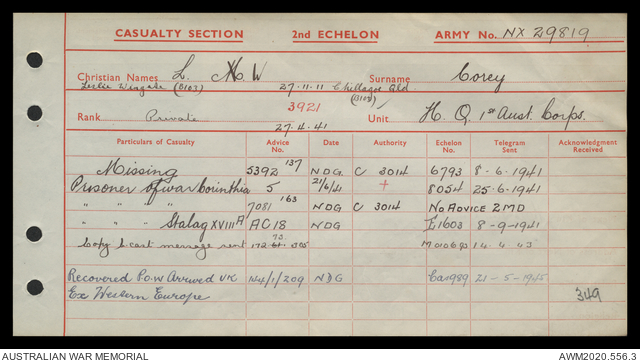 CASUALTY SECTION 2nd ECHELON ARMY No. NX 29819
Christian Names L. W Surname Corey
Leslie (B103) 27-11-11 Chillagoe Qld (B103)
3921
Rank Private Unit H.Q. 1st Aust. Corps.
27.4.41
Particulars of Casualty Advice No. Date Authority Echelon No. Telegram Sent Acknowledgment Received
Missing 5392 137 NDG C 3014 6793 8-6-1941
Prisoner of war Corinthia 5 21/6/41 + 8054 25-6-1941
" " " 7081 163 NDG C 3014 No Advice 2MD
" " " Stalag XVIII A AC18 NDG E1603 8-9-1941
Copy b.cast message sent 14.4.43
Recovered P.o.W Arrived UK 144/1/209 NDG Ca1989 21-5-1945
Ex Western Europe 349
AUSTRALIAN WAR MEMORIAL AWM2020.556.3